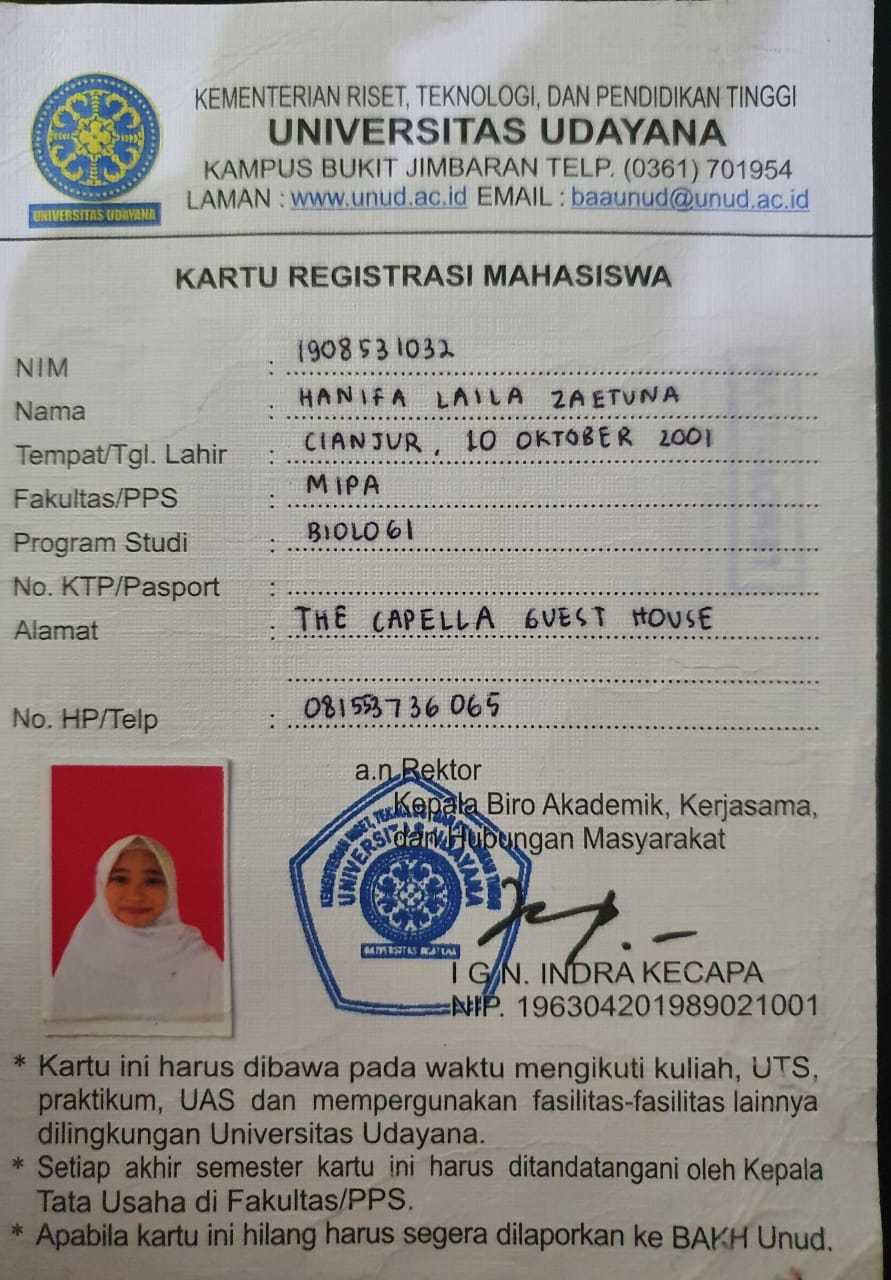 KEMENTERIAN RISET, TEKNOLOGI, DAN PENDIDIKAN TINGGI
UNIVERSITAS UDAYANA
KAMPUS BUKIT JIMBARAN TELP. (0361) 701954
LAMAN : www.unud.ac.id EMAIL : baaunud@unud.ac.id
UNIVERSITAS UDAYANA
KARTU REGISTRASI MAHASISWA
NIM : 1908531032
Nama : HANIFA LAILA ZAETUNA
Tempat/Tgl. Lahir : CIANJUR, 10 OKTOBER 2001
Fakultas/PPS : MIPA
Program Studi : BIOLOGI
No. KTP/Pasport :
Alamat : THE CAPELLA GUEST HOUSE
No. HP/Telp : 081553736065
a.n Rektor
Kepala Biro Akademik, Kerjasama,
dan Hubungan Masyarakat
UNIVERSITAS UDAYANA
I G.N. INDRA KECAPA
NIP. 196304201989021001
* Kartu ini harus dibawa pada waktu mengikuti kuliah, UTS,
praktikum, UAS dan mempergunakan fasilitas-fasilitas lainnya
dilingkungan Universitas Udayana.
* Setiap akhir semester kartu ini harus ditandatangani oleh Kepala
Tata Usaha di Fakultas/PPS.
* Apabila kartu ini hilang harus segera dilaporkan ke BAKH Unud.